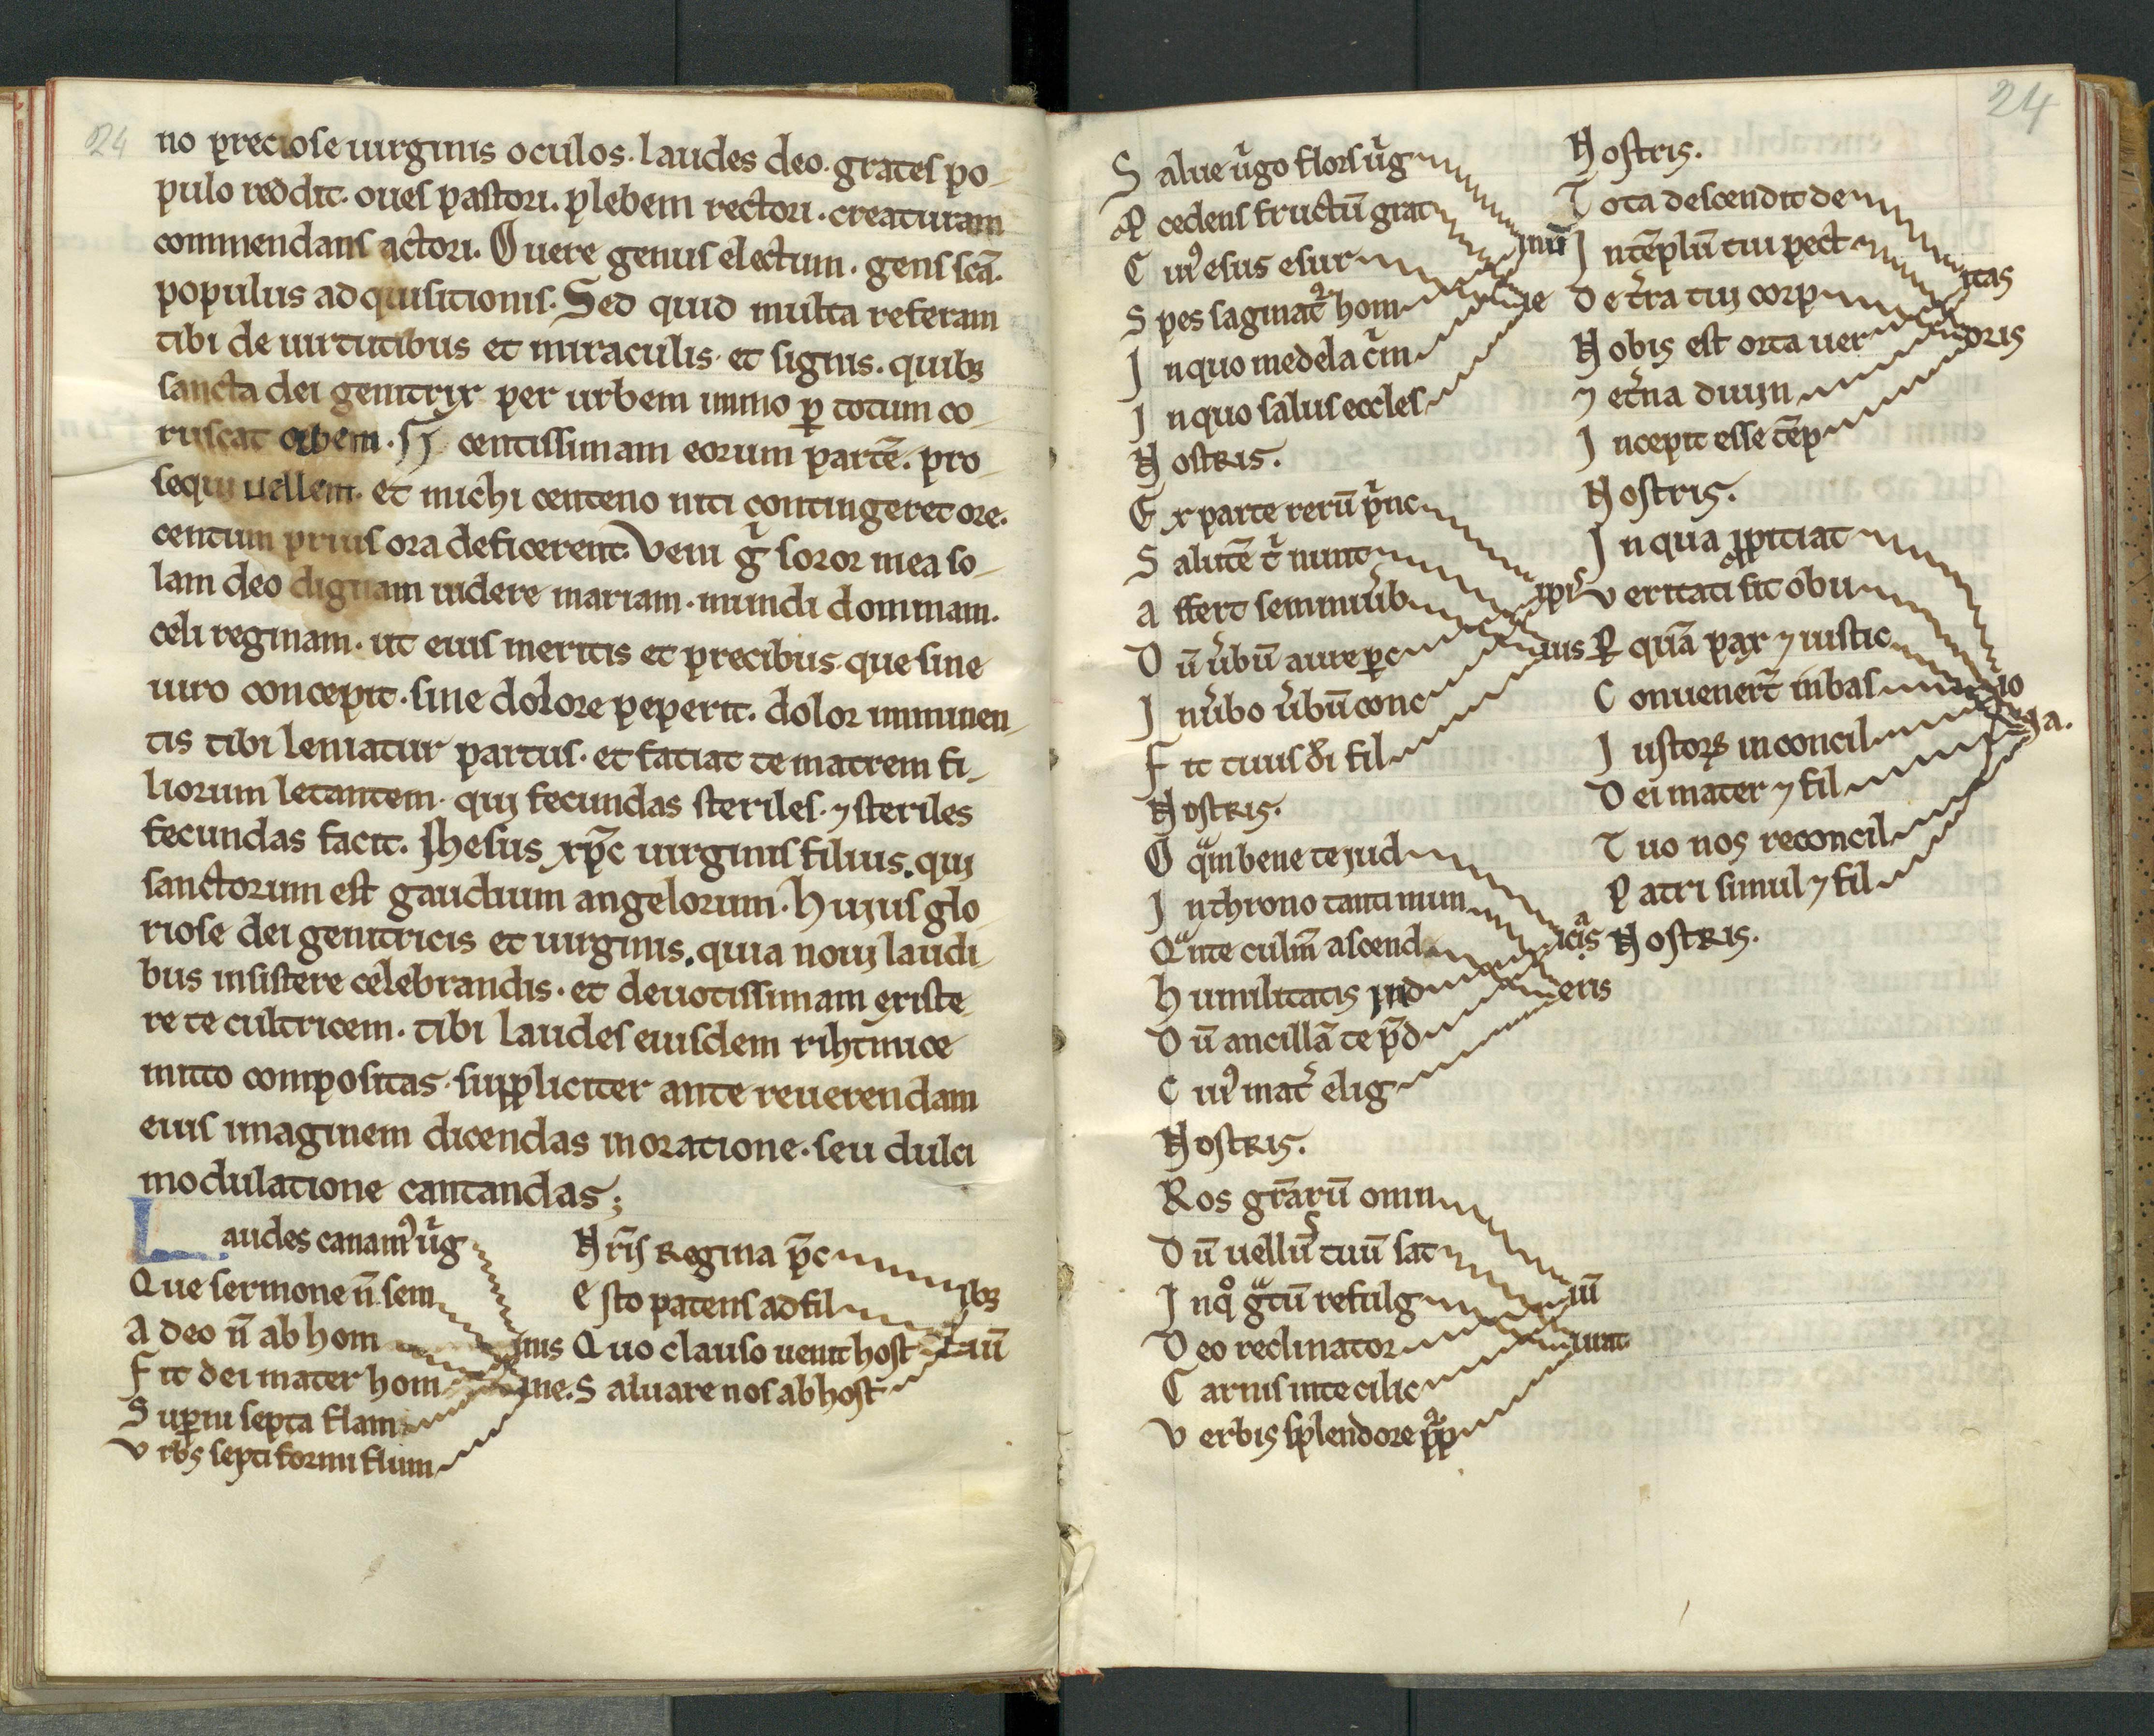 24
no preciose uirginis oculos. laudes deo. grates po-
pulo reddit. oues pastori. plebem rectori. creaturam
commendans actori. O uere genus electum. gens scā.
populus adquisitionis. Sed quid multa referam
tibi de uirtutibus et miraculis. et signis. quibꝫ
sancta dei genitrix per urbem immo ꝑ totum co-
ruscat orbem. Si centissimam eorum partē. pro-
sequi uellem. et michi centeno niti contingeret ore.
centum prius ora deficerent. Veni gͥ soror mea so-
lam deo dignam uidere mariam. mundi dominam.
celi reginam. ut eius meritis et precibus. que sine
uiro concepit. sine dolore peperit. dolor imminen-
tis tibi leniatur partus. et faciat te matrem fi-
liorum letantem. qui fecundas steriles. ⁊ steriles
fecundas facit. Jhesus xp̄c uirginis filius. qui
sanctorum est gaudium angelorum. Hujus glo-
riose dei genitricis et uirginis. quia noui laudi-
bus insistere celebrandis. et deuotissimam existe-
re te cultricem. tibi laudes eiusdem rihtmice
mitto compositas. suppliciter ante reuerendam
eius imaginem dicendas in oratione. seu dulci
modulatione cantandas;
Laudes canamꝰ uͥg
Que sermone n̄ sem
A deo n̄ ab hom inis
Fit dei mater hom ine.
Suꝑni septa flam
Vrbs septiformi flum
Nr̄is Regina p̄c ibꝫ
Esto patens ad fil
Quo clauso uenit host iū
Saluare nos ab host
24
Salue uͥgo flors uͥg
Pcedens fructū grat inū
Cuiꝰ esus esur
Spes saginat᷑ hom ie
In quo medela cͥm
In quo salus eccles
Nostris.
Ex parte rerū pͥnc
Salutē t͛ nunt
Affert semini u͛b ipiꝰ
Dū u͛bū aure ꝑc ius
In u͛bo u͛bū conc
Fit tuus dī fil
Nostris.
O qͣm bene te jud
In throno tanti mun
Qͣnte culm̄ ascend icis
Humilitatis jnd eris
Dū ancillā te p̄d
Cuiꝰ mat͛ elig
Nostris.
Ros gr̄arū omn
Dū uellꝰ tuū sat
In qͦ gͣtū refulg iū
Deo reclinator iunt
Carnis in te cilic
Verbis splendore
Nostris.
Tota descendit de
In tēplū tui pect itas
De t͛ra tui corp
Nobis est orta uer oris
⁊ et͛na diuin
Incepit esse tēp
Nostris.
In qua ꝓpitiat
Veritati fit obu
P quā pax ⁊ iustic
Conuenert̄ in bas io
Iustoꝝ in concil a.
Dei mater ⁊ fil
Tuo nos reconcil
Patri simul ⁊ fil
Nostris.